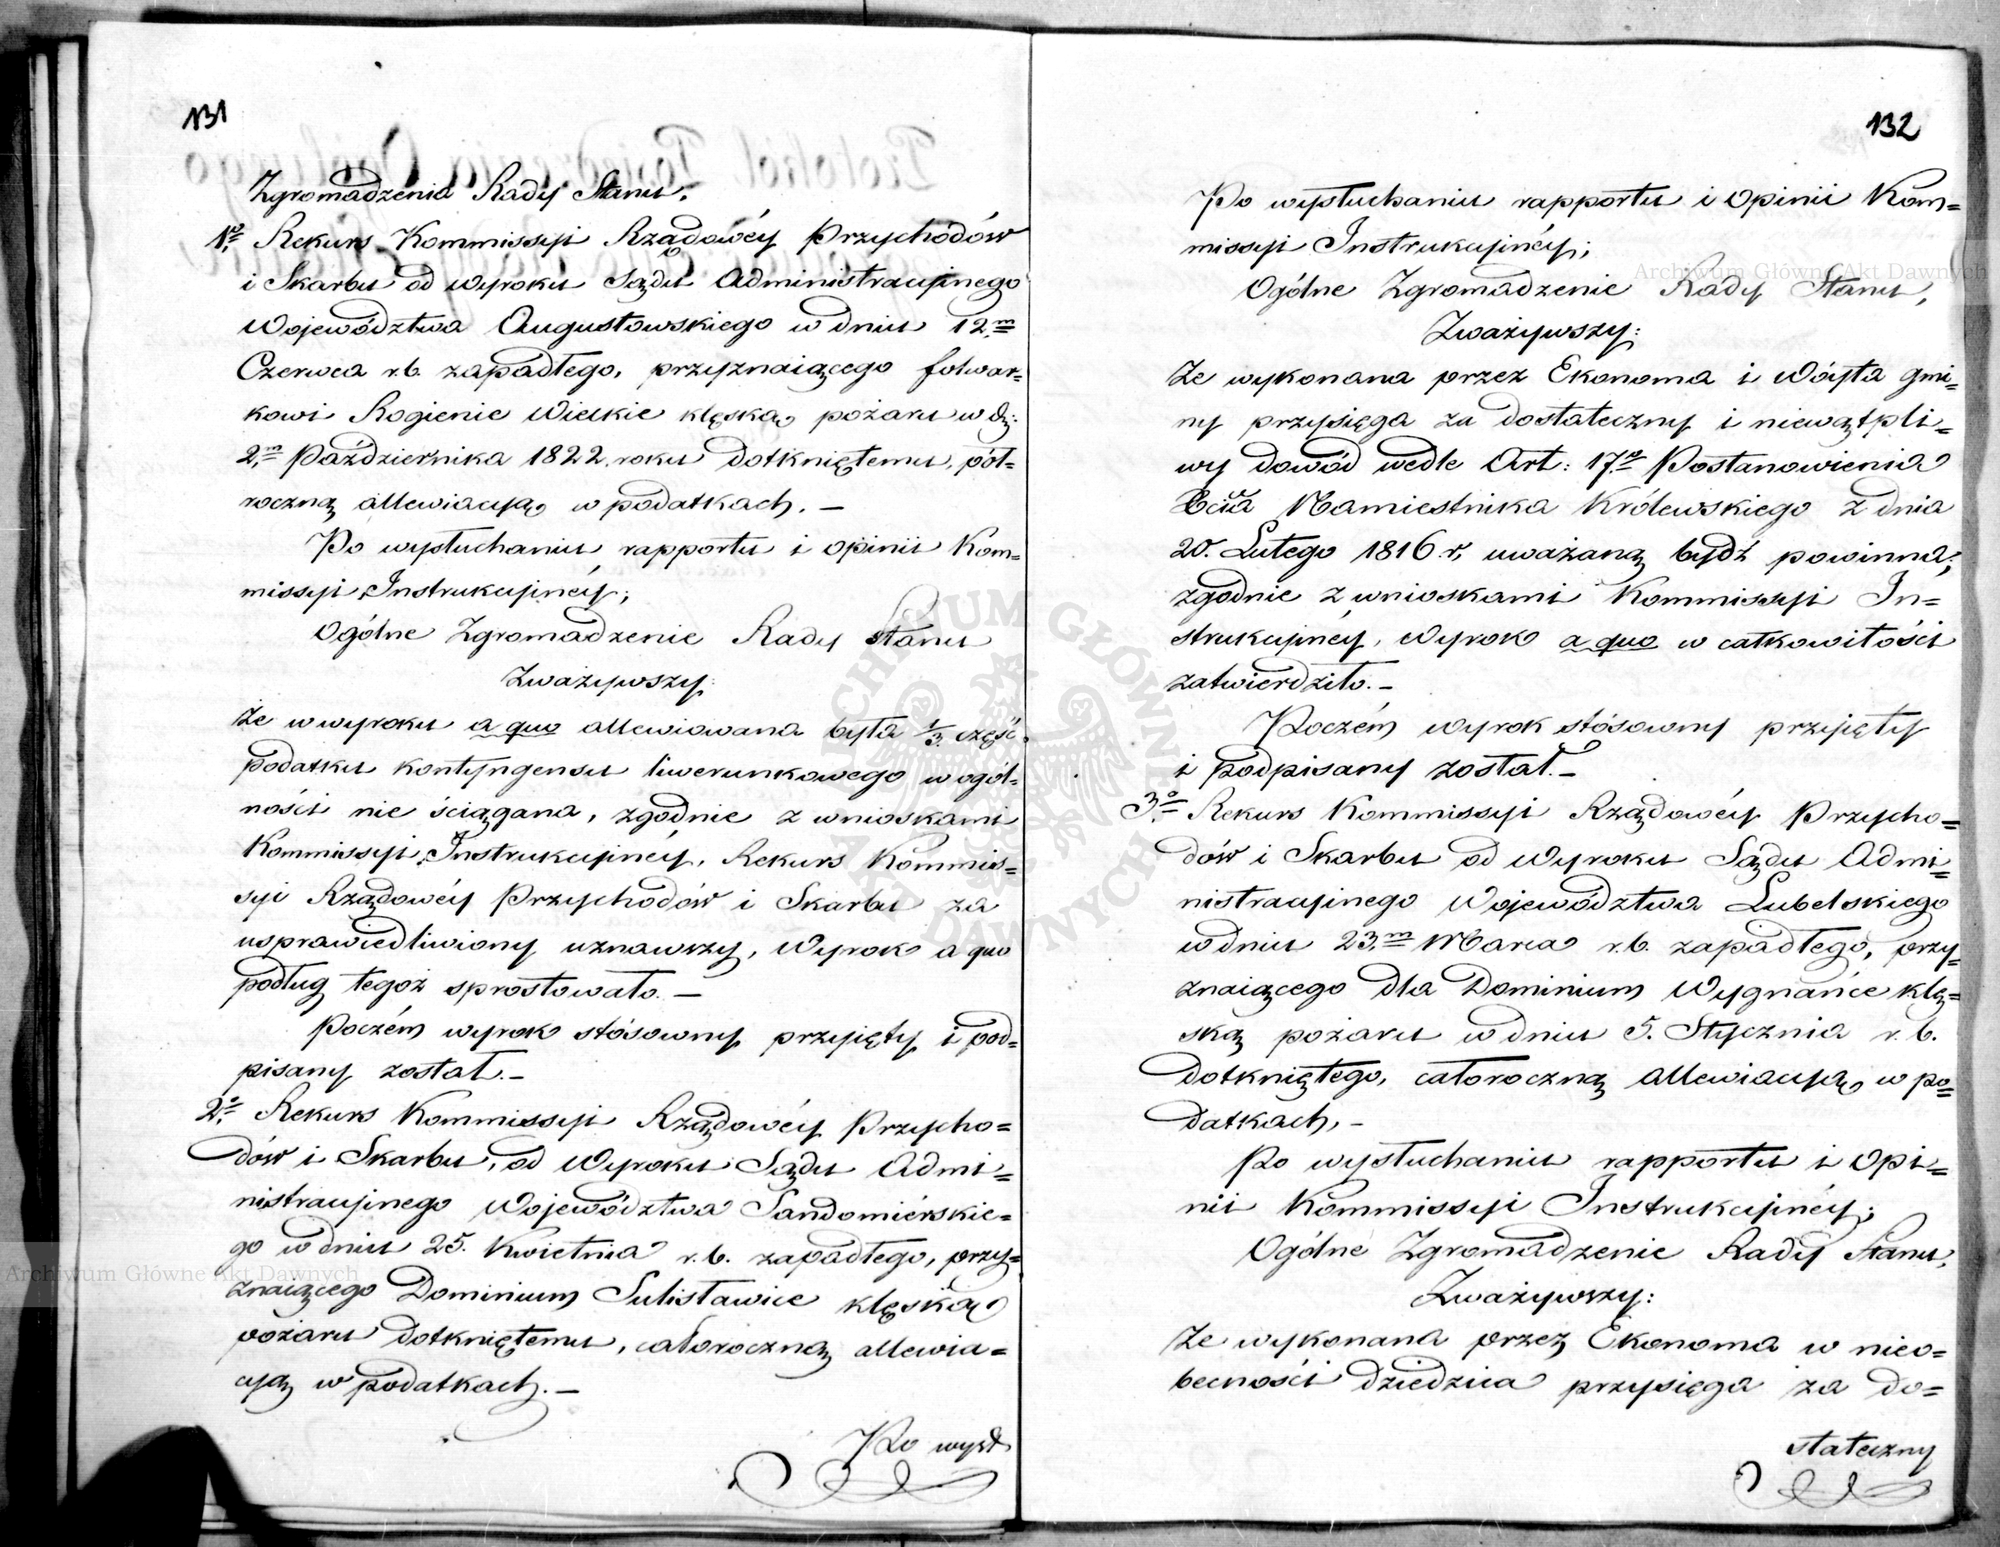 131
Zgromadzenia Rady Stanu.
1o. Rekurs Kommissyi Rządowéy Przychodów
i Skarbu od wyroku Sądu Administracyinego
Województwa Augustowskiego w dniu 12.m
Czerwca r.b. zapadłego, przyznaiącego folwar=
kowi Rogienie Wielkie klęską pożaru w d:
2.m Października 1822. roku dotkniętemu, pół=
roczną allewiacyią w podatkach. —
Po wysłuchaniu rapportu i opinii Kom=
missyi Instrukcyinéy;
Ogólne Zgromadzenie Rady Stanu
Zważywszy:
Że w wyroku a quo allewiowana była 1/3. część
podatku kontyngensu liwerunkowego w ogól=
ności nie ściągana, zgodnie z wnioskami
Kommissyi Instrukcyinéy, Rekurs Kommis=
syi Rządowéy Przychodów i Skarbu za
usprawiedliwiony uznawszy, Wyrok a quo
podług tegoż sprostowało. —
Poczém wyrok stósowny przyięty i pod=
pisany został. —
2o. Rekurs Kommissyi Rządowéy Przycho=
dów i Skarbu, od Wyroku Sądu Admi=
nistracyinego Województwa Sandomiérskie=
go w dniu 25. Kwietnia r.b. zapadłego, przy=
znaiącego Dominium Sulisławice klęską
pożaru dotkniętemu, całoroczną allewia=
cyią w podatkach. —
Po wysł
132
Po wysłuchaniu rapportu i Opinii Kom=
missyi Instrukcyinéy;
Ogólne Zgromadzenie Rady Stanu,
Zważywszy:
Że wykonana przez Ekonoma i Wóyta gmi=
ny przysięga za dostateczny i niewątpli=
wy dowód wedle Art: 17.o Postanowienia
Xcia Namiestnika Królewskiego z dnia
20. Lutego 1816 r, uważaną bydź powinna;
zgodnie z wnioskami Kommissyi In=
strukcyinéy, Wyrok a quo w całkowitości
zatwierdziło. —
Poczém wyrok stósowny przyięty
i podpisany został. —
3o. Rekurs Kommissyi Rządowéy Przycho=
dów i Skarbu od Wyroku Sądu Admi=
nistracyinego Województwa Lubelskiego
w dniu 23.m Marca r.b. zapadłego, przy=
znaiącego dla Dominium Wygnańce klę=
ską pożaru w dniu 5. Stycznia r.b.
dotkniętego, całoroczną allewiacyią w po=
datkach. —
Po wysłuchaniu rapportu i Opi=
nii Kommissyi Instrukcyinéy;
Ogólne Zgromadzenie Rady Stanu,
Zważywszy:
Że wykonana przez Ekonoma w nieo=
becności dziedzica przysięga za do=
stateczny
Archiwum Główne Akt Dawnych
Archiwum Główne Akt Dawnych
ARCHIWUM GŁÓWNE AKT DAWNYCH